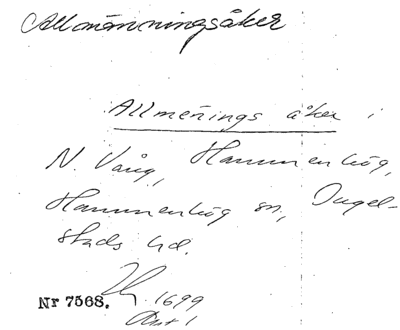 Allmänningsåker
Allmenings åker i
N. Vång, Hammenhög,
Hammenhög sn, Ingel-
stads hd.
Nr 7568. 1699